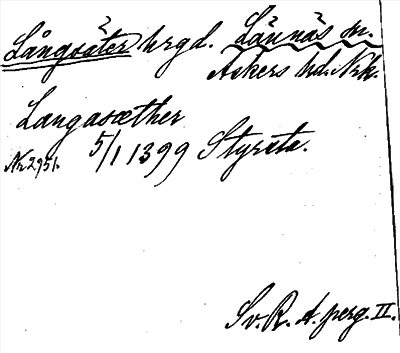 ? ?
Långsäter hrgd. Lännäs sn.
Åkers hd. Nrk.
Langasæther
5/1 1399 Styrsta.
Nr 2951.
Sv. R. A. perg. II.